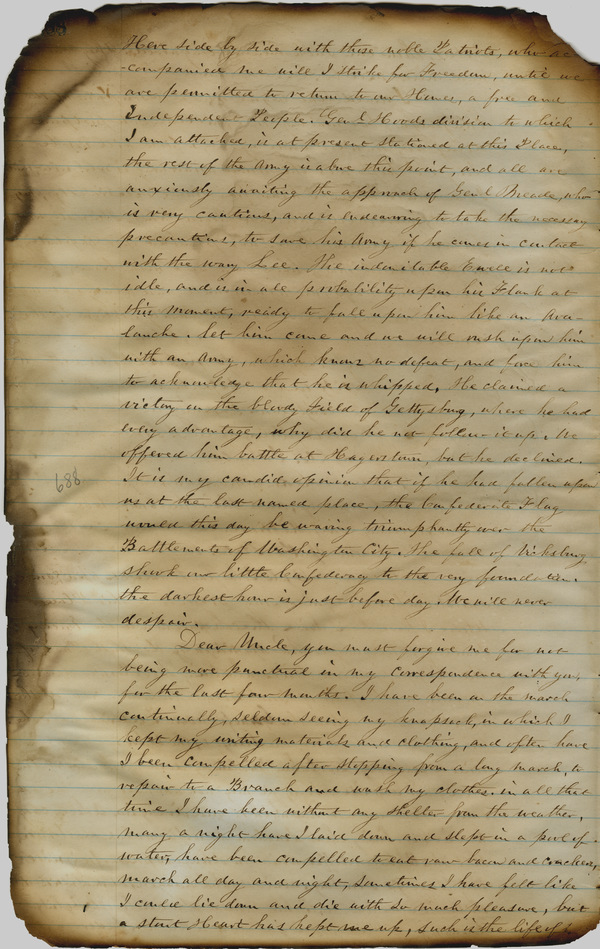 Here side by side with those noble Patriots, who ac
-companied me will I strike for Freedom, until we
are permitted to return to our Homes, a free and
Independent People. Genl Hoods division to which
I am attached, is at present stationed at this Place,
the rest of the Army is above this point, and all are
anxiously awaiting the approach of Genl Meade, who
is very cautious, and is endeavoring to take the necessay
precautions, to save his Army if he comes in contact
with the wary Lee. The indomitable Ewell is not
idle, and is in all probability upon his Flank at
this moment, ready to fall upon him like an Ava-
lanche. let him come and we will rush upon him
with an Army, which knows no defeat, and force him
to acknowledge that he is whipped. He claimed a
victory on the bloody Field of Gettysburg, where he had
every advantage, why did he not follow it up. We
offered him battle at Hagerstown, but he declined.
It is my candid opinion that if he had fallen upon
688
us at the last named place, the Confederate Flag
would this day be waving triumphantly over the
Battlements of Washington City. The fall of Vicksburg
shook our little Confederacy to the very foundation.
the darkest hour is just before day. We will never
despair.
Dear Uncle, you must forgive me for not
being more punctual in my correspondence with you,
for the last four months. I have been on the march
continually, seldom seeing my knapsack, in which I
kept my writing materials and clothing, and often have
I been compelled after stopping from a long march, to
repair to a Branch and wash my clothes. in all that
time I have been without any shelter from the weather,
many a night have I laid down and slept in a pool of
water, have been compelled to eat raw bacon and crackers,
march all day and night, sometimes I have felt like
I could lie down and die with so much pleasure, but
a stout Heart has kept me up, such is the life of